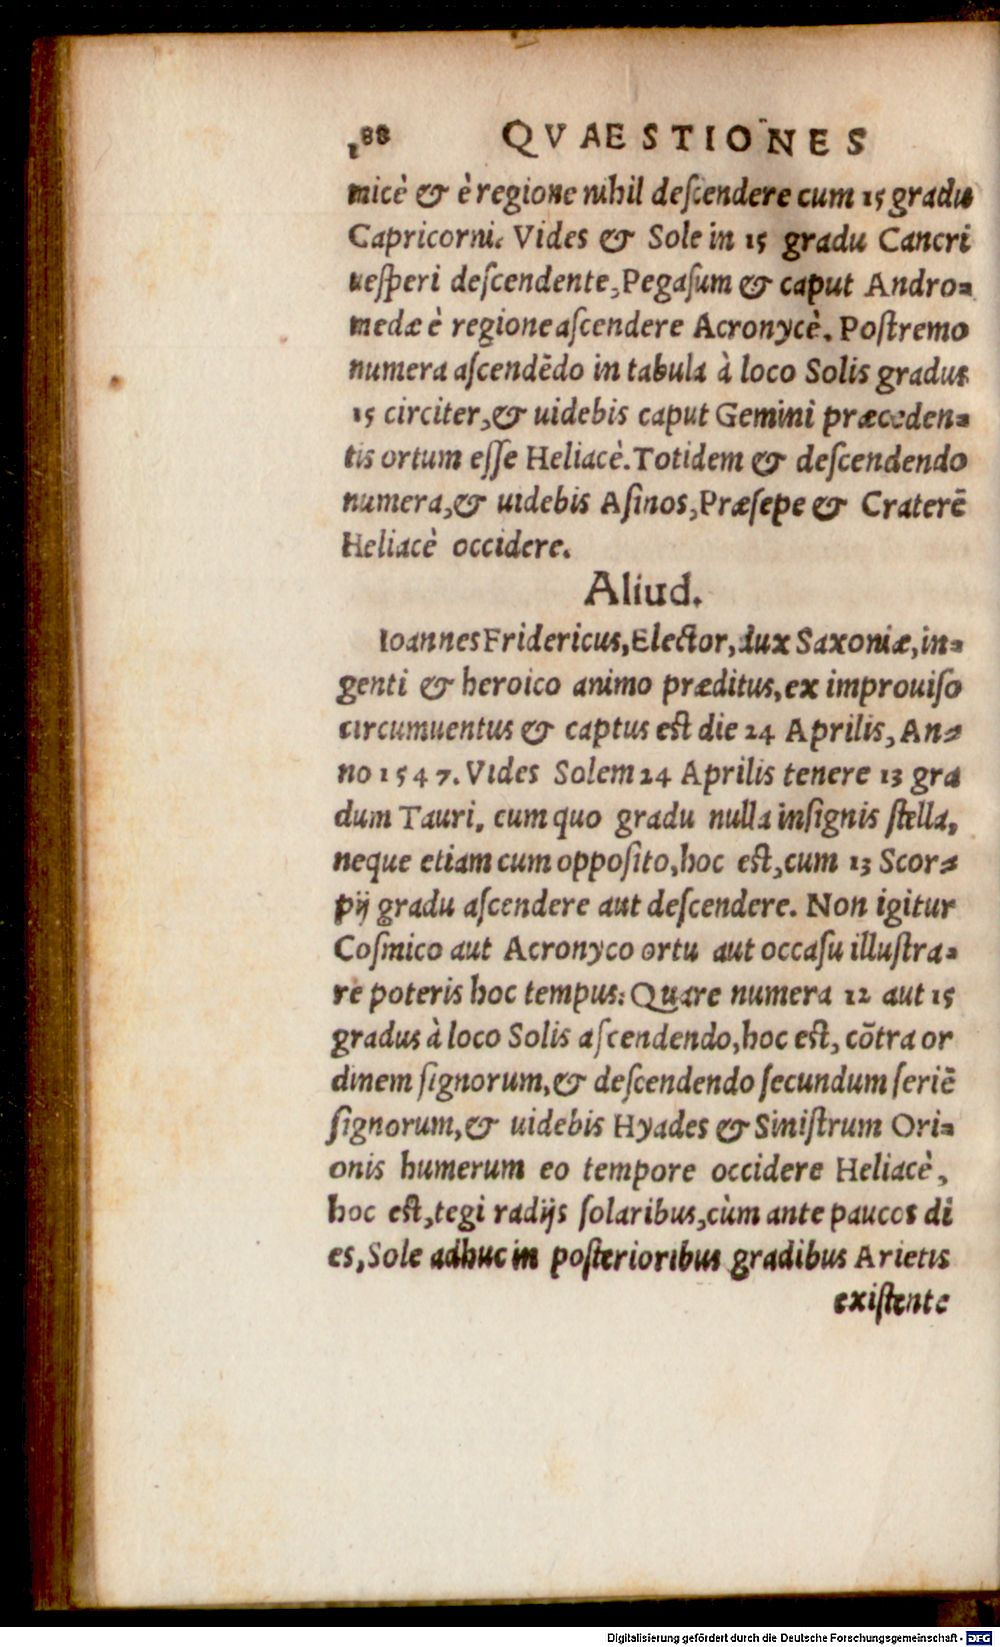 188 QVAESTIONES
micè & è regione nihil deſcendere cum 15 gradu
Capricorni. Vides & Sole in 15 gradu Cancri
ueſperi deſcendente, Pegaſum & caput Andro-
medæ è regione aſcendere Acronycè. Poſtremo
numera aſcendẽdo in tabula à loco Solis gradus
15 circiter, & uidebis caput Gemini præceden-
tis ortum eſſe Heliacè. Totidem & deſcendendo
numera, & uidebis Aſinos, Præſepe & Craterẽ
Heliacè occidere.
Aliud.
Ioannes Fridericus, Elector, dux Saxoniæ, in-
genti & heroico animo præditus, ex improuiſo
circumuentus & captus eſt die 24 Aprilis, An-
no 1547. Vides Solem 24 Aprilis tenere 13 gra
dum Tauri, cum quo gradu nulla inſignis ſtella,
neque etiam cum oppoſito, hoc eſt, cum 13 Scor-
pij gradu aſcendere aut deſcendere. Non igitur
Coſmico aut Acronyco ortu aut occaſu illuſtra-
re poteris hoc tempus: Quare numera 12 aut 15
gradus à loco Solis aſcendendo, hoc eſt, cõtra or
dinem ſignorum, & deſcendendo ſecundum ſeriẽ
ſignorum, & uidebis Hyades & Siniſtrum Ori-
onis humerum eo tempore occidere Heliacè,
hoc eſt, tegi radijs ſolaribus, cùm ante paucos di
es, Sole adhuc in poſterioribus gradibus Arietis
exiſtente
Digitalisierung gefördert durch die Deutsche Forschungsgemeinschaft - DFG